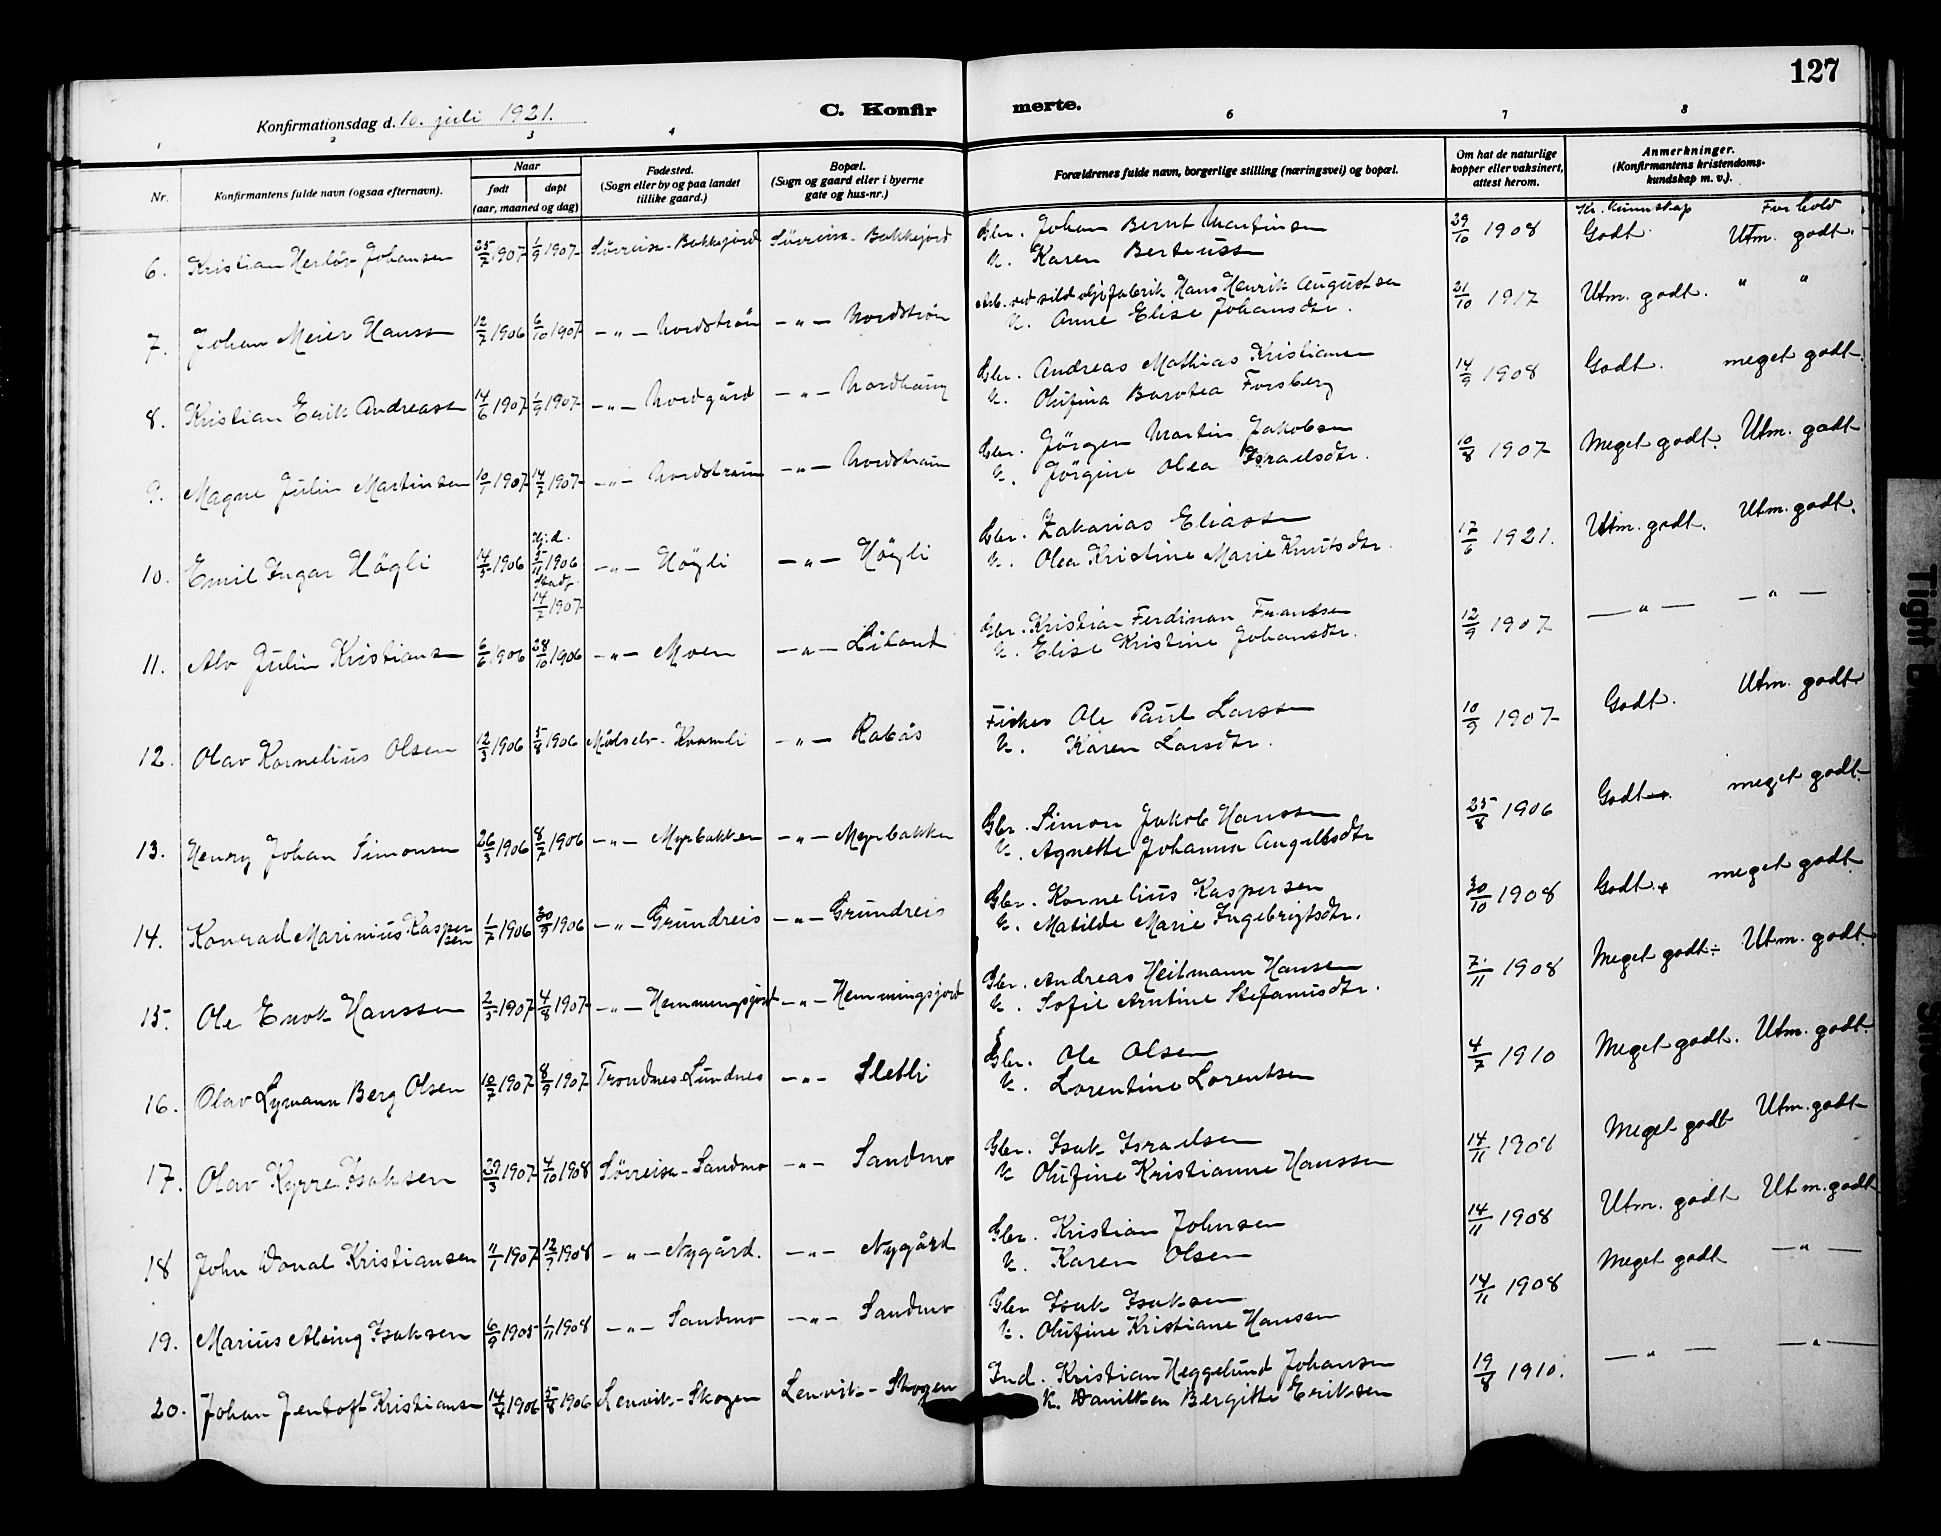 127
Konfirmationsdag d. 10. juli 1921.
C. Konfirmerte.
1 2 3 4 6 7 8
Nr.
Konfirmantens fulde navn (ogsaa efternavn).
Naar
født døpt
(aar, maaned og dag)
Fødested.
(Sogn eller by og paa landet
tillike gaard.)
Bopæl.
(Sogn og gaard eller i byerne
gate og hus-nr.)
Forældrenes fulde navn, borgerlige stilling (næringsvei) og bopæl.
Om hat de naturlige
kopper eller vaksinert,
attest herom.
Anmerkninger.
(Konfirmantens kristendoms-
kundskap m. v.).
Kr. kunnskap Forhold
6. Kristian Herløv Johansen 25/7 1907 1/9 1907 Sørreisa - Bakkejord Sørreisa - Bakkejord Gbr. Johan Bernt Martinsen 29/10 1908 Godt. Utm. godt.
K. Karen Berteussen
7. Johan Meier Hanssen 12/7 1906 6/10 1907 -"- Nordstrøm -"- Nordstrøm Arb. ved sildoljefabrik Hans Henrik Augustsen 21/10 1917 Utm. godt. " "
K. Anne Elise Johansdtr.
8. Kristian Erik Andreasen 14/6 1907 1/9 1907 -"- Nordgård -"- Gbr. Andreas Mathias Kristiansen 14/9 1908 Godt. meget godt.
K. Olufina Barotea Forsberg
9. Magne Julin Martinsen 10/1 1907 14/7 1907 -"- Nordstraum -"- Nordstraum Gbr. Jørgen Martin Jakobsen 10/8 1907 Meget godt. Utm. godt
K. Jørgine Olea Israelsdtr.
10. Emil Ingar Høgli 14/5 1906 Hj.d. 5/11 1906 Stadf. 14/7 1907 -"- Høgli -"- Høgli Gbr. Zakarias Eliassen 17/6 1921. Utm. godt. Utm. godt.
K. Olea Kristine Marie Knutsdtr.
11. Alv Julin Kristiansen 6/6 1906 28/10 1906 -"- Moen -"- Liland Gbr. Kristian Ferdinan Frantsen 12/9 1907 -"- -"-
K. Elise Kristine Johansdtr.
12. Olav Kornelius Olsen 12/3 1906 5/8 1906 Målselv - -"- Rabås Fisker Ole Paul Larssen 10/9 1907 Godt. Utm. godt.
K. Karen Larsdtr.
13. Henry Johan Simonsen 26/3 1906 8/7 1906 -"- Myrbakken -"- Myrbakken Gbr. Simon Jakob Hanssen 25/8 1906 Godt. meget godt.
K. Agnethe Johanna
14. Konrad Marinius Kaspersen 1/7 1906 30/9 1906 -"- Grundreis -"- Grundreis Gbr. Kornelius Kaspersen 30/10 1908 Godt + meget godt.
K. Matilde Marie Ingebrigtsdtr.
15. Ole Enok Hanssen 2/5 1907 4/8 1907 -"- Hemmingsjord -"- Hemmingsjord Gbr. Andreas Heitmann Hansen 7/11 1908 Meget godt ÷ Utm. godt.
K. Sofie Arntine Stefanusdtr.
16. Olav Lymann Berg Olsen 10/7 1907 8/9 1907 Trondnes Lundnes -"- Sletli Gbr. Ole Olsen 4/7 1910 Meget godt. Utm. godt.
K. Lorentine Lorentsen
17. Olav Kyrre Isaksen 29/3 1907 4/10 1908 Sørreisa - Sandmo -"- Sandmo Gbr. Isak Israelsen 14/11 Meget godt Utm. godt
K. Olufine Kristianne Hanssen
18 John Donal Kristiansen 11/1 1907 12/7 1908 -"- Nygård. -"- Nygård Gbr. Kristian Johnsen 14/11 1908 Utm. godt Utm. godt
K. Karen Olsen
19. Marius Isaksen 6/9 1905 1/11 1908 -"- Sandmo -"- Sandmo Gbr Isak Isaksen 14/11 1908 Meget godt -"-
K. Olufine Kristiane Hanssen
20. Johan Jentoft Kristiansen 14/4 1906 5/8 1906 Lenvik - Skogen Lenvik - Skogen Ind. Kristian Heggelund Johansen 19/8 1910. -"- -"-
K. Danikken Bergitte Eriksen